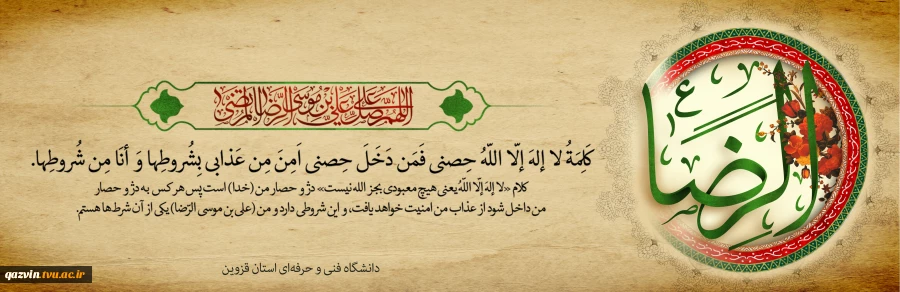 الرضا
ع
اللهم صل علی علی بن موسی الرضا المرتضی
کَلِمَةُ لا إلهَ إلّا اللّهُ حِصنی فَمَن دَخَلَ حِصنی اَمِنَ مِن عَذابی بِشُروطِها وَ أنَا مِن شُروطِها.
کلام «لا إلهَ إلّا اللّهُ یعنی هیچ معبودی بجز الله نیست» دژ و حصار من (خدا) است پس هر کس به دژ و حصار
من داخل شود از عذاب من امنیت خواهد یافت، و این شروطی دارد و من (علی بن موسی الرّضا) یکی از آن شرط‌ها هستم.
دانشگاه فنی و حرفه‌ای استان قزوین
qazvin.tvu.ac.ir